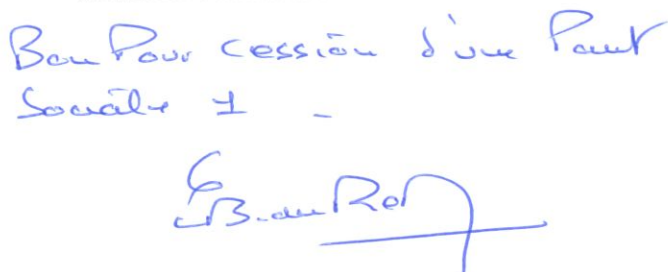 Bon Pour cession d'une Part
Sociale 1 -